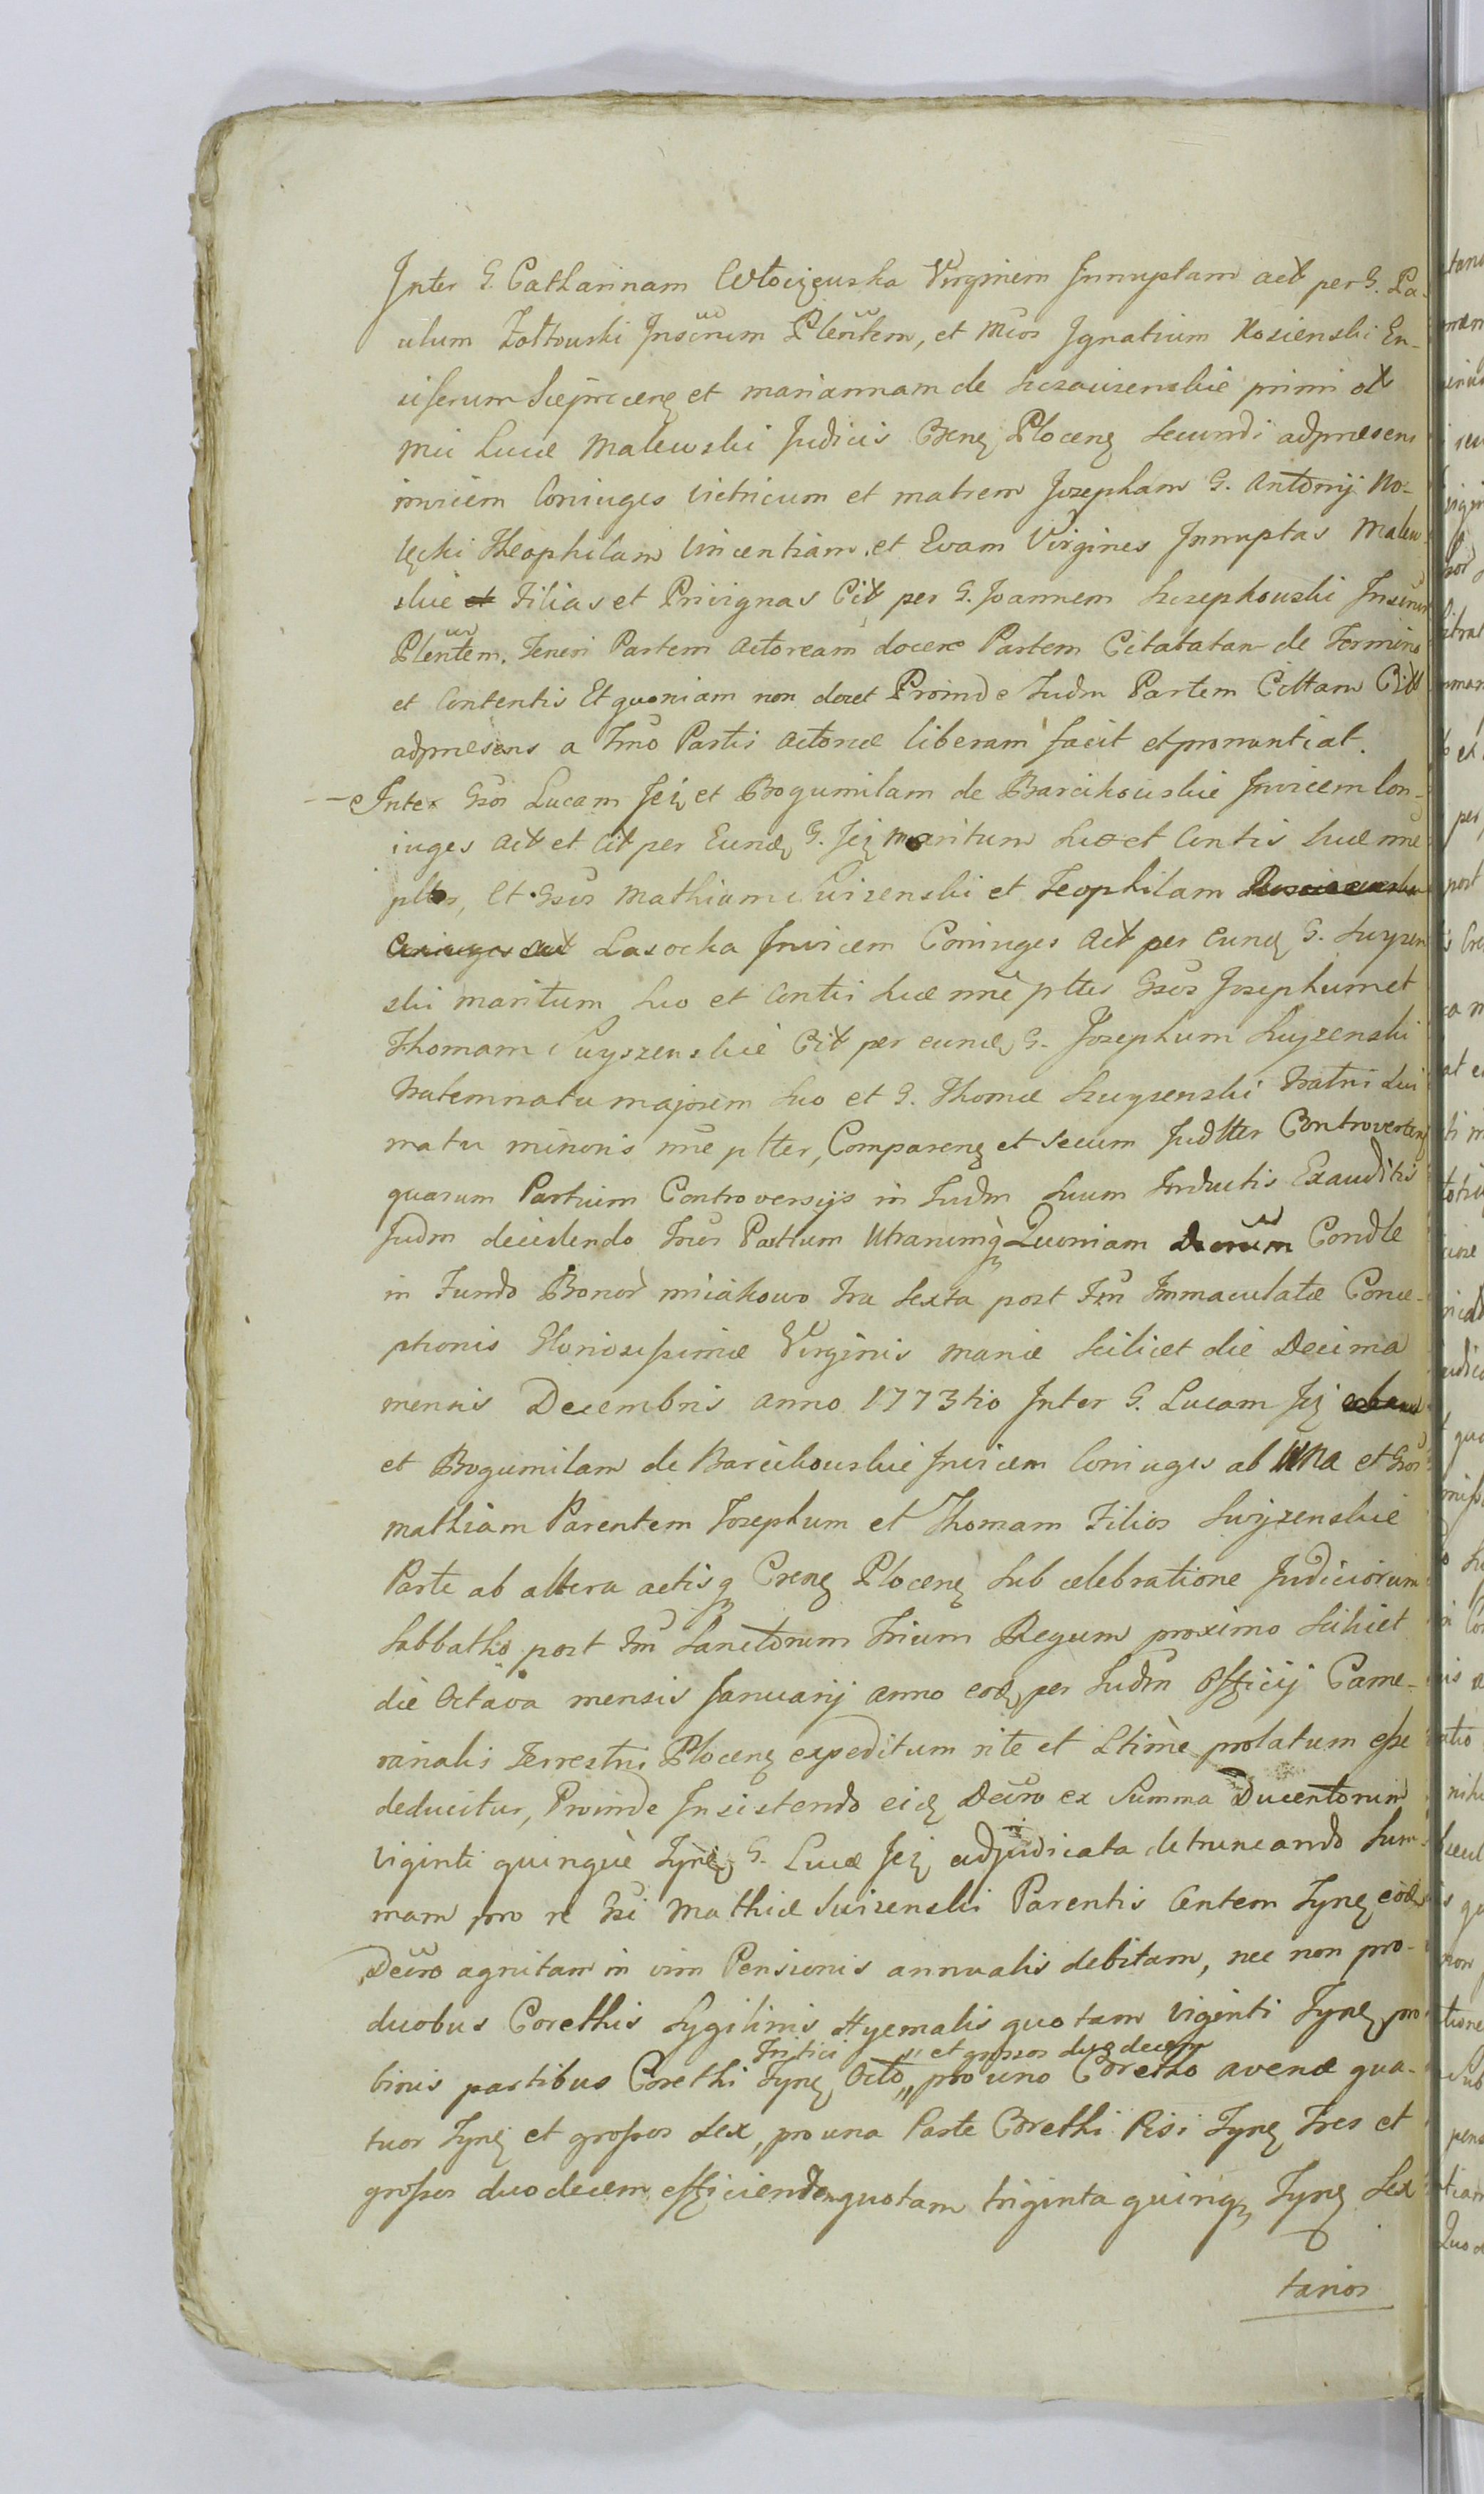 Inter G. Catharinam Włociszewska Virginem Innuptam act per G. Pa-
ulum Żołtowski Inscrum Plentem, et Mcos Ignatium Kosienski En-
siferum Sieprcens et mariannam de Szczawienskie primi ot
Mci Lucæ Malewski Judicis Cstrens Plocens secundi adpræsens
invicem Coniuges Victricum et matrem Josepham G. Antonij No-
węcki Theophilam Vincentiam et Evam Virgines Innuptas Malew-
skie et Filias et Privignas Cit per G. Joannem Szczepkowski Inscrum
Plentem. Teneri Partem Actoream docere Partem Citatatam de Termino
et Contentis Et quoniam non docet Proinde Judm Partem Cittam Citt
adpræsens a Tmno Partis Actoreæ liberam facit et pronuntiat.
Inter Gsos Lucam Jeż et Bogumilam de Barcikowskie Invicem Con-
iuges Act et Cit per Eund G. Jeż Maritum suo et Contis suæ nne
pltes, Et Gsos Mathiam Suizenski et Teophilam
Coniuges act Lasocka Invicem Coniuges Act per eund G. Suyzen
ski maritum suo et Contis suæ nne pltes Gsos Josephum et
Thomam Suyszenskie Cit per eund G. Josephum Suyzenski
Fratrem natu majorem suo et G. Thomæ Suyzenski Fratris sui
natu minoris nne plter, Comparens et secum Judtter Controvertens
quarum Partium Controversijs in Judm suum Inductis Exauditis
Judm decidendo Tnos Partium Utrarumq Quoniam Decrum Condle
in Fundo Bonor Miiakowo Fra sexta post Fm Immaculatæ Conce-
ptionis Gloriosissimæ Virginis Mariæ scilicet die Decima
mensis Decembris anno 1773tio Inter G. Lucam Jeż
et Bogumilam de Barcikowskie Invicem Coniuges ab una et Gsos
Mathiam Parentem Josephum et Thomam Filios Swyzenskie
Parte ab altera actisq Crens Plocens sub celebratione Judiciorum
Sabbatho post Fm Sanctorum Trium Regum proximo scilicet
die Octava mensis Januarij anno eod per Judm Officij Came-
ranalis Terrestris Plocens expeditum rite et Ltime prolatum esse
deducitur, Proinde Insistendo eid Decro ex Summa Ducentorum
Viginti quinque Tynf G. Lucæ Jeż adjudicata detruncando Sum-
mam pro re Gsi Mathiæ Suizenski Parentis Centem Tynf eod
Decro agnitam in vim Pensionis annualis debitam, nec non pro
duobus Corethis Sygilinis Hyemalis quotam Viginti Tynf pro
Tritici „ et grossos duodecem
binis partibus Corethi Tynf Octo „ pro uno Coretho avenæ qua-
tuor Tynf et grossos sex, pro una Parte Corethi Pisi Tynf Tres et
grossos duodecem efficiendam quotam triginta quinq Tynf Sex
tarios